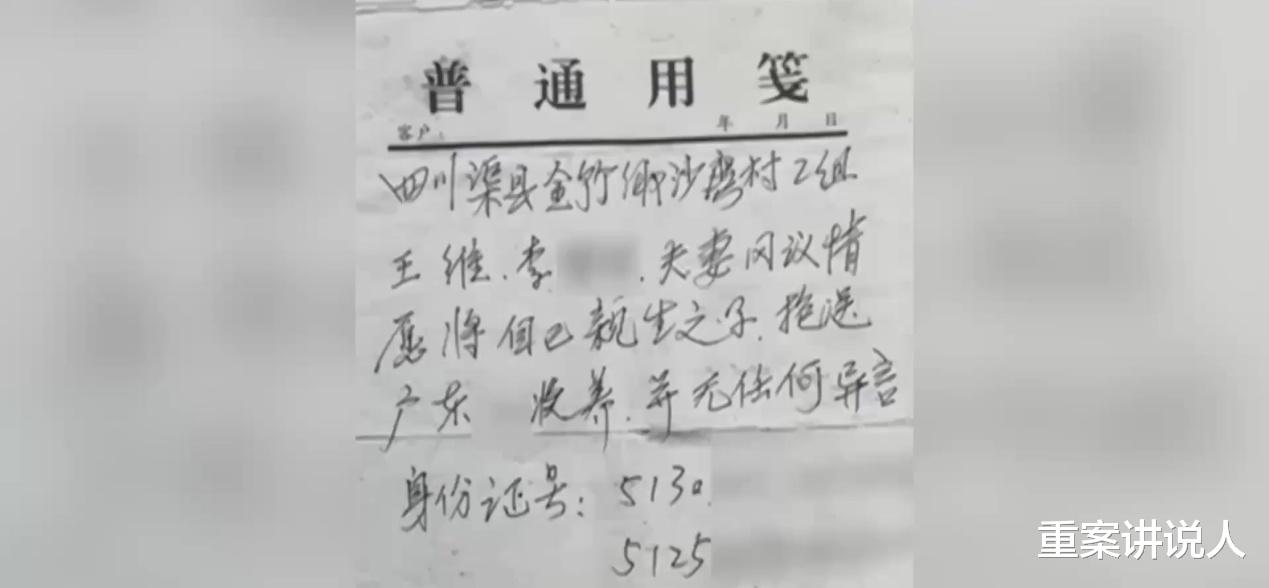 普通用笺
客户： 年 月 日
四川渠县金竹乡沙磨村2组
王维、李 、夫妻同议情
愿将自己亲生之子、抱送
广东 收养、并无任何异言
身份证号：5130
5125
重案讲说人